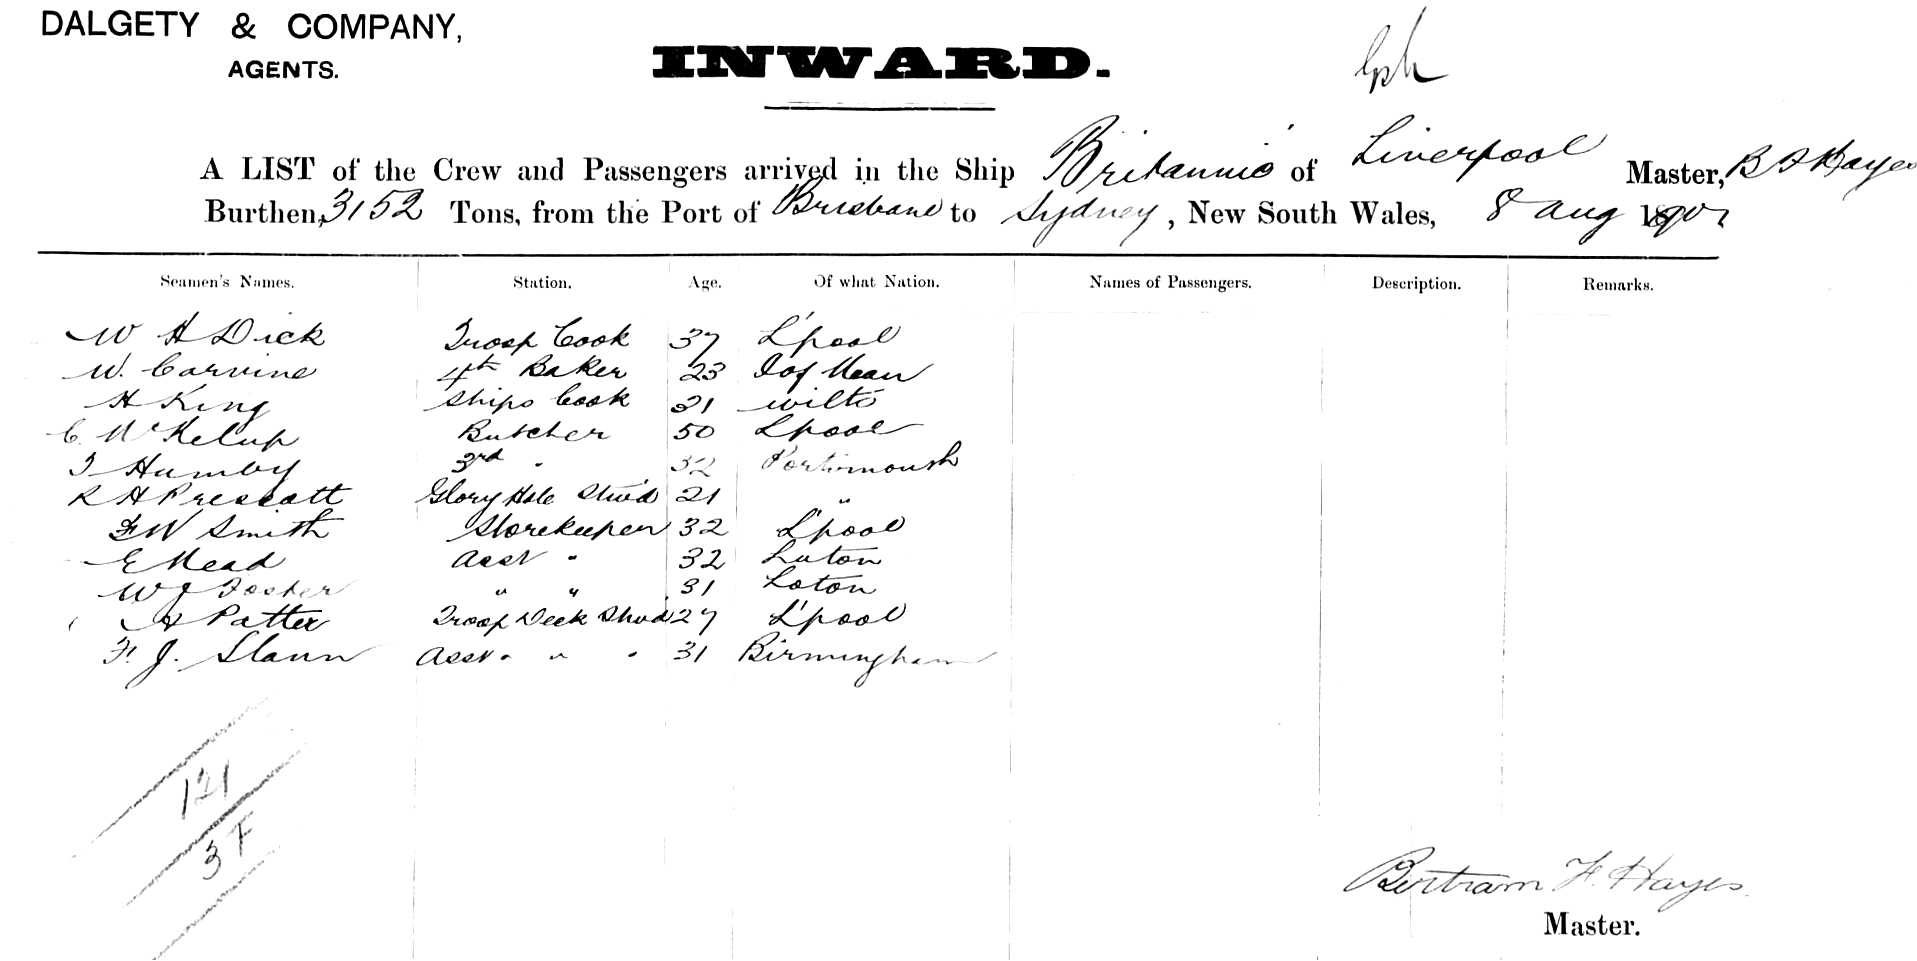 DALGETY & COMPANY,
AGENTS.
INWARD.
A LIST of the Crew and Passengers arrived in the Ship Britannic of Liverpool Master, B F Hayes
Burthen, 3152 Tons, from the Port of Brisbane to Sydney, New South Wales, 8 Aug 1901
Seamen's Names. Station. Age. Of what Nation. Names of Passengers. Description. Remarks.
W H Dick Troop Cook 37 L'pool
W. Carvine 4th Baker 23 I of Man
H King Ships Cook 21 Wilts
C. Butcher 50 Lpool
T Humby 3rd " 32 Portsmouth
R H Prescott Glory Hole Stwd 21 "
F W Smith Storekeeper 32 L'pool
E Mead Asst " 32 Luton
W J Foster " " 31 Loton
A Patter Troop Deck Stwd 27 L'pool
F. J. Slann Asst " " " 31 Birmingham
121
3 F
Bertram F. Hayes
Master.